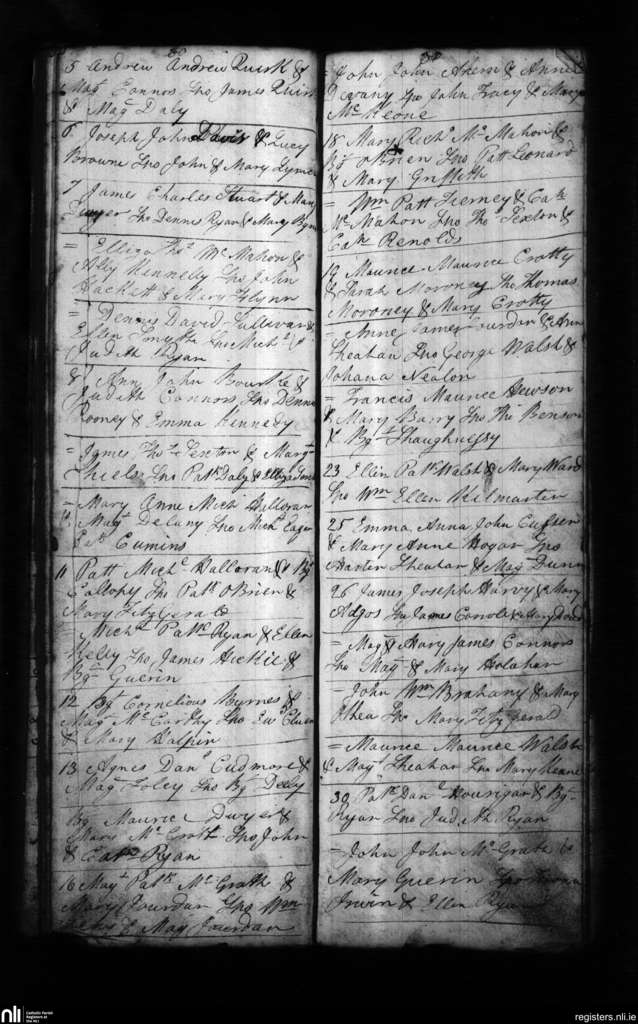 5 Andrew Andrew Quirk &
Magt Connors Spo James Quirk
& Magt Daly
6 Joseph John Davis & Lucy
Browne Spo John & Mary Lyme
7 James Charles Stuart & Mary
Spo Dennis Ryan & Mary Byrn
= Elliza Thos Mc Mahon &
Ally Kennelly Spo John
Hackett & Mary Flynn
= Dennis David Sullivan &
Ellen Smyth Spo Michl
Judith Ryan
8 Ann John Bourke &
Judith Connors Spo Dennis
Rooney & Emma Kennedy
= James Thos Sexton & Margt
Shiels Spo Patk Daly &
= Mary Anne Michl Halloran
Magt Delany Spo Michl
Cumins
11 Patt Michl Halloran &
Spo Patk OBrien &
Mary FitzGerald
= Michl Patk Ryan & Ellen
Kelly Spo James Hickie &
Bgt Guerin
12 Bgt Cornelious Byrnes &
Magt McCarthy Spo
& Mary Halpin
13 Agnes Danl Cudmore &
Magt Foley Spo Bgt
Bgt Maurice Dwyer &
Mary Spo John
& Cathn Ryan
16 Magt Patk McGrath &
Mary Jourdan Spo Wm
& Magt Jourdan
= John John Ahern & Annie
Devany Spo John Tracy & Mary
McKeone
18 Mary Richd McMahon &
Bgt OBrien Spo Patt Leonard
& Mary Griffith
= Wm Patt Tierney & Cath
McMahon Spo Thos Sexton &
Cath Renolds
19 Maurice Maurice Crotty
& Sarah Moroney Spo Thomas
Moroney & Mary Crotty
Anne James Jourdan & Ann
Sheahan Spo George Walsh &
Johana Nealon
= Francis Maurice Hewson
& Mary Barry Spo Thos Benson
& Bgt Shaughnessy
23 Ellen Patk Walsh & Mary Ward
Spo Wm Ellen Kilmartin
25 Emma Anna John
& Mary Anne Hogan Spo
Sheahan & Magt Dunn
26 James Joseph Harvy & Mary
Spo James & Mary
= Magt & Mary James Connors
Spo Magt & Mary Holahan
= John Wm Brahany & Mary
OShea Spo Mary FitzGerald
= Maurice Maurice Walsh
& Magt Sheahan Spo Mary Keane
30 Patk Danl Hourigan & Bgt
Ryan Spo Judith Ryan
= John John McGrath &
Mary Guerin Spo
Irwin & Ellen Ryan
nli
Catholic Parish
Registers at
the NLI
registers.nli.ie